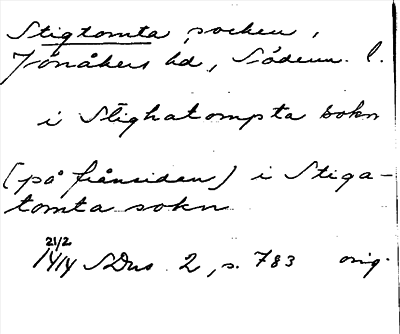 Stigtomta socken,
Jönåkers hd, Söderm. l.
i Stighatompta sokn
(på frånsidan) i Stiga-
tomta sokn
21/2
1414 SDns 2, s. 783 orig.